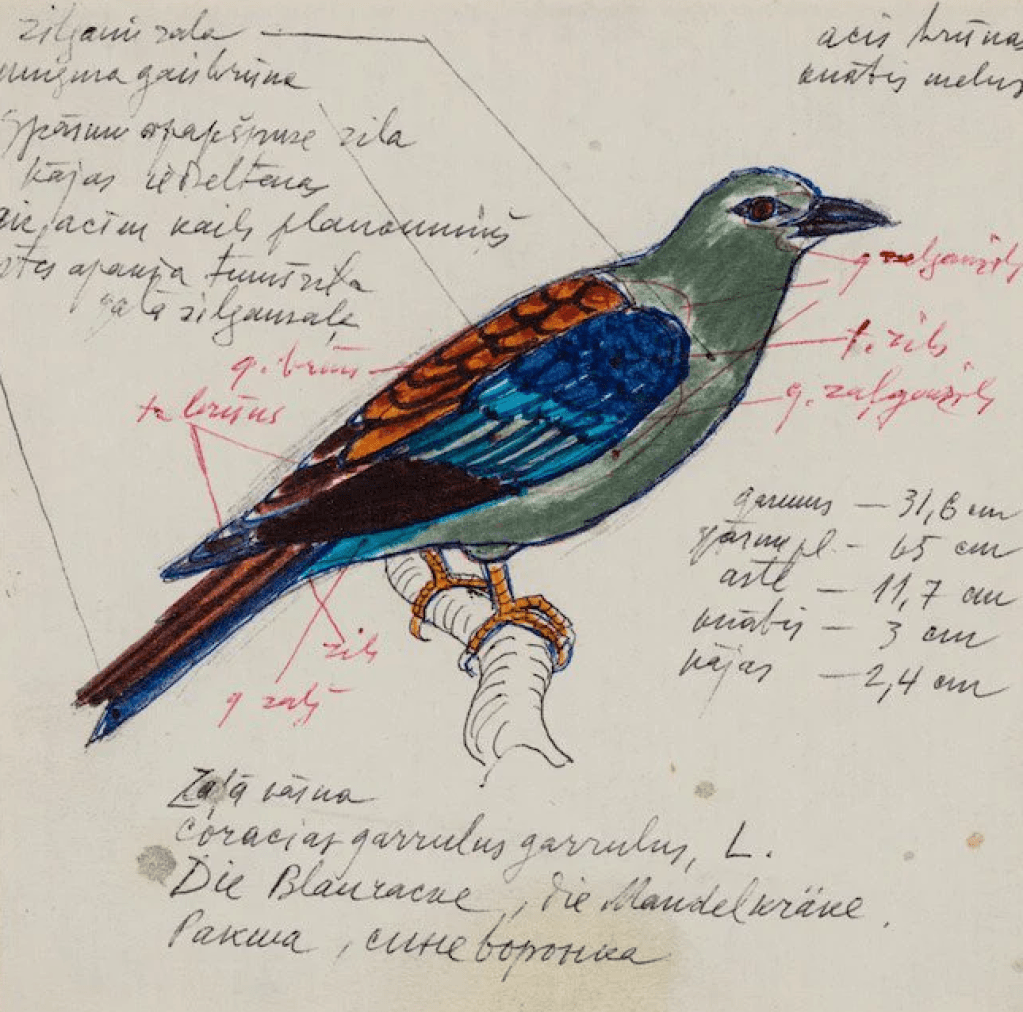 zilgani zaļa
acis brūnas
mugura gaišbrūna
knābis melns
Spārnu apakšpuse zila
kājas iedzeltenas
aiz acīm kails plankumiņš
astes apakša tumšzila
galā zilganzaļa
g. zaļganzils
g. brūns
t. zils
t. brūns
g. zaļganzils
garums — 31,6 cm
spārnu pl. - 65 cm
aste — 11,7 cm
knābis — 3 cm
kājas — 2,4 cm
zils
g zaļš
Zaļā vārna
Coracias garrulus garrulus, L.
Die Blauracke, die Mandelkräke.
Ракша, синеворонка